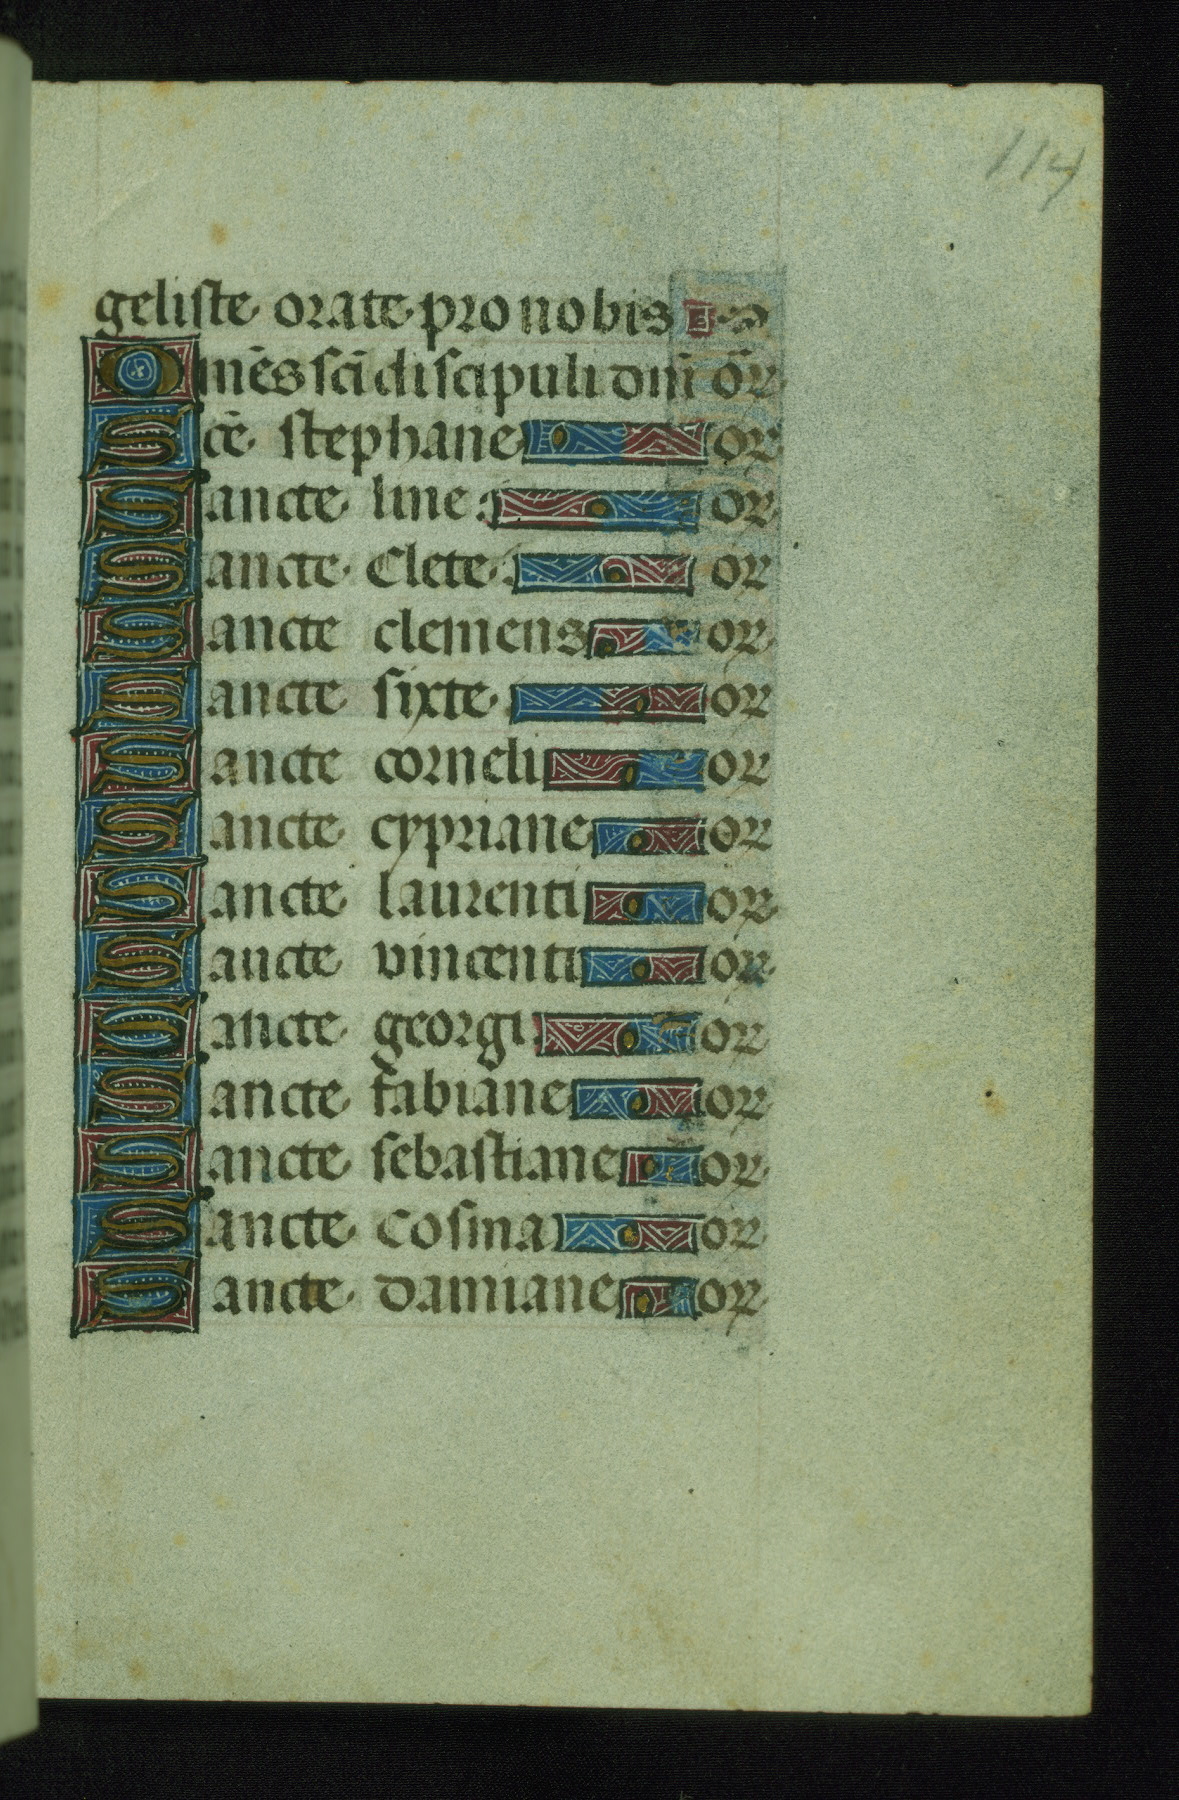 114
geliste orate pro nobis
Om̄es sc̄i discipuli dn̄i or̄
Sc̄e stephane or
Sancte line or
Sancte Clete or
Sancte clemens or
Sancte sixte or
Sancte corneli or
Sancte cypriane or
Sancte laurenti or
Sancte vincenti or
Sancte georgi or
Sancte fabiane or
Sancte sebastiane or
Sancte Cosma or
Sancte damiane or